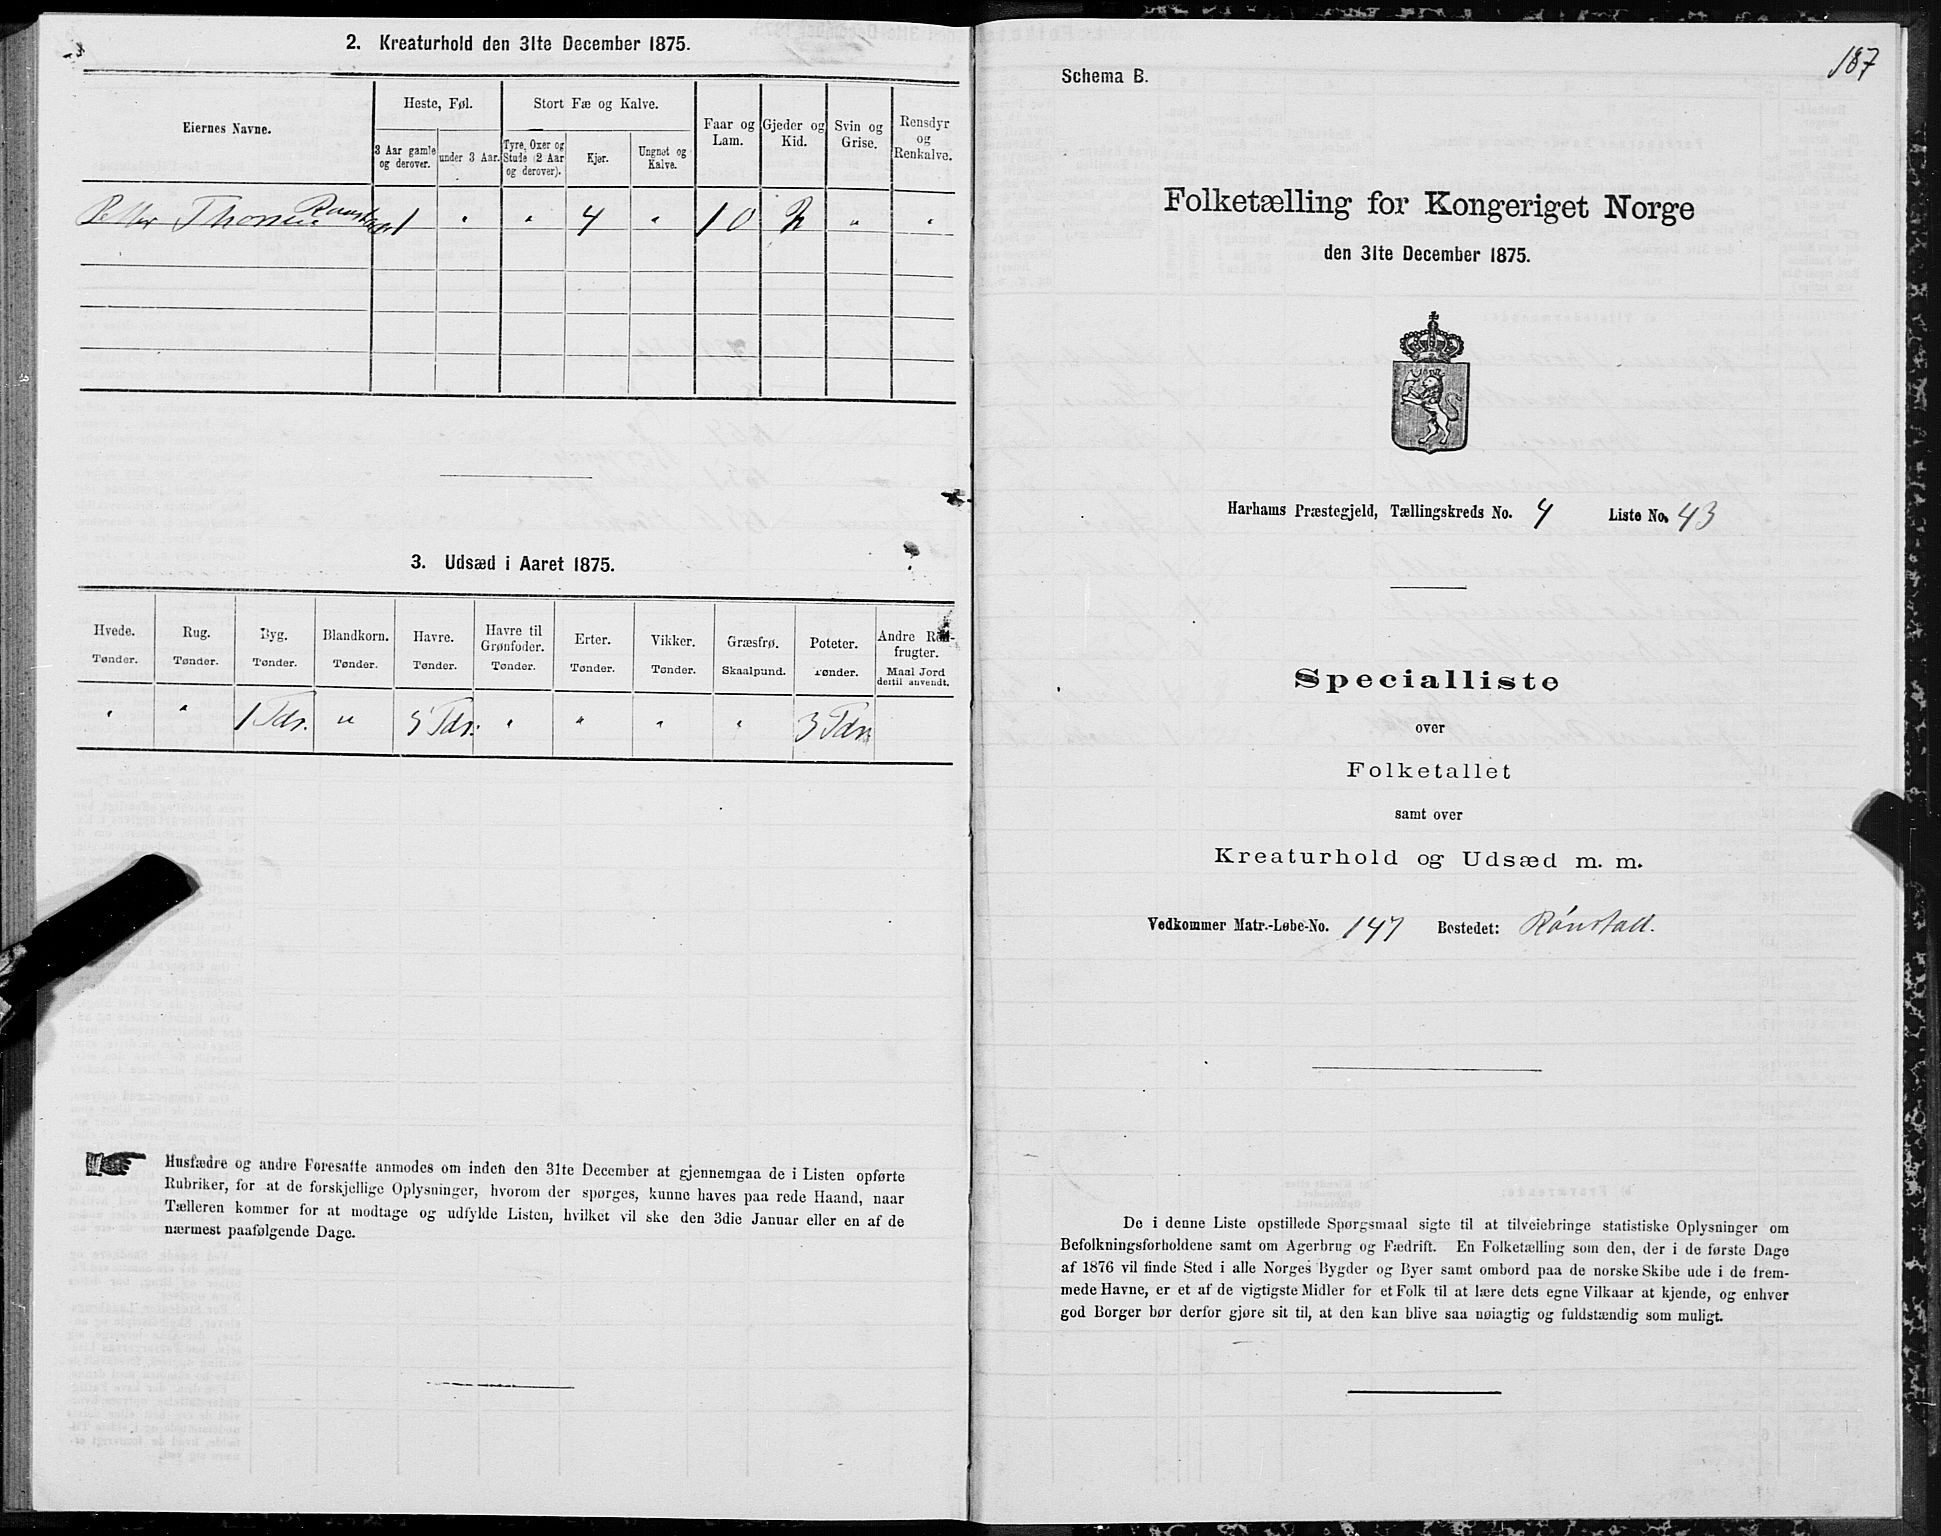 2. Kreaturhold den 31te December 1875.
Eiernes Navne.
Heste, Føl.
Stort Fæ og Kalve.
Faar og Lam.
Gjeder og Kid.
Svin og Grise.
Rensdyr og Renkalve.
3 Aar gamle og derover.
under 3 Aar.
Tyre, Oxer og Stude (2 Aar og derover).
Kjør.
Ungnøt og Kalve.
Petter Thomas 1 " " 4 " 10 2 " "
3. Udsæd i Aaret 1875.
Hvede. Rug. Byg. Blandkorn. Havre. Havre til Grønfoder. Erter. Vikker. Græsfrø. Poteter. Andre Rodfrugter.
Tønder. Tønder. Tønder. Tønder. Tønder. Tønder. Tønder. Tønder. Skaalpund. Tønder. Maal Jord dertil anvendt.
" " 1 Tdr. " 5 Tdr. " " " " 3 Tdr.
Husfædre og andre Foresatte anmodes om inden den 31te December at gjennemgaa de i Listen opførte
Rubriker, for at de forskjellige Oplysninger, hvorom der spørges, kunne haves paa rede Haand, naar
Tælleren kommer for at modtage og udfylde Listen, hvilket vil ske den 3die Januar eller en af de
nærmest paafølgende Dage.
187
Schema B.
Folketælling for Kongeriget Norge
den 31te December 1875.
Harhams Præstegjeld, Tællingskreds No. 4 Liste No. 43
Specialliste
over
Folketallet
samt over
Kreaturhold og Udsæd m. m.
Vedkommer Matr.-Løbe-No. 147 Bostedet: Rønstad.
De i denne Liste opstillede Spørgsmaal sigte til at tilveiebringe statistiske Oplysninger om
Befolkningsforholdene samt om Agerbrug og Fædrift. En Folketælling som den, der i de første Dage
af 1876 vil finde Sted i alle Norges Bygder og Byer samt ombord paa de norske Skibe ude i de frem-
mede Havne, er et af de vigtigste Midler for et Folk til at lære dets egne Vilkaar at kjende, og enhver
god Borger bør derfor gjøre sit til, at den kan blive saa nøiagtig og fuldstændig som muligt.